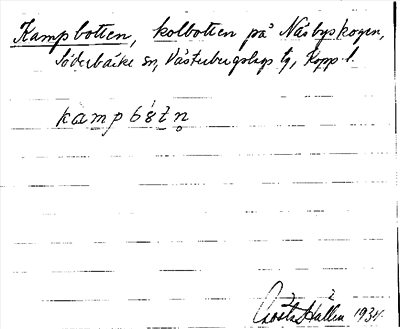 Kampbotten, kolbotten på Näsbyskogen,
Söderbärke sn, Västerbergslags tg, Kopp l.
kampbótn̥
Gösta Hallén 1934.